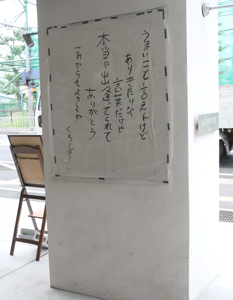 うまいこと言えんけど
ありきたりな
言葉だけど
本当に出逢てくれて
ありがとう!
これからもよろしくね